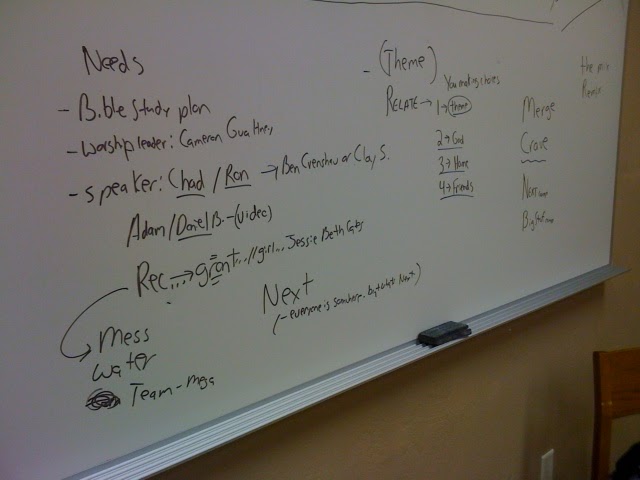 Needs
- Bible Study plan
- Worship leader: Cameron Gualtney
- Speaker: Chad / Ron → Ben Crenshaw or Clay S.
Adam / Daniel B. - (video)
Rec...→ grant... // girl... Jessie Beth
Mess
water
Team - mega
Next
(- everyone is somewhere. but what's Next.)
- (Theme)
You making choices
RELATE → 1 → theme
2 → God
3 → Home
4 → Friends
Merge
Crave
Next
the